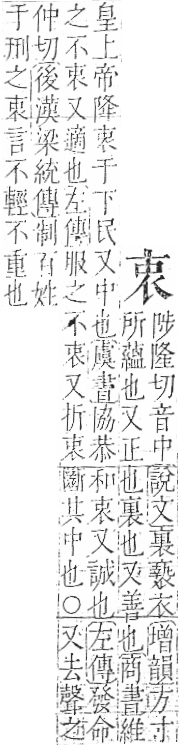 衷
陟隆切音中說文裏褻衣增韻方寸
所蘊也又正也裏也又善也商書維
皇上帝隆衷于下民又中也虞書協恭和衷又誠也左傳發命
之不衷又適也左傳服之不衷又折衷斷其中也○又去聲之
仲切後漢梁統傳制百姓
于刑之衷言不輕不重也